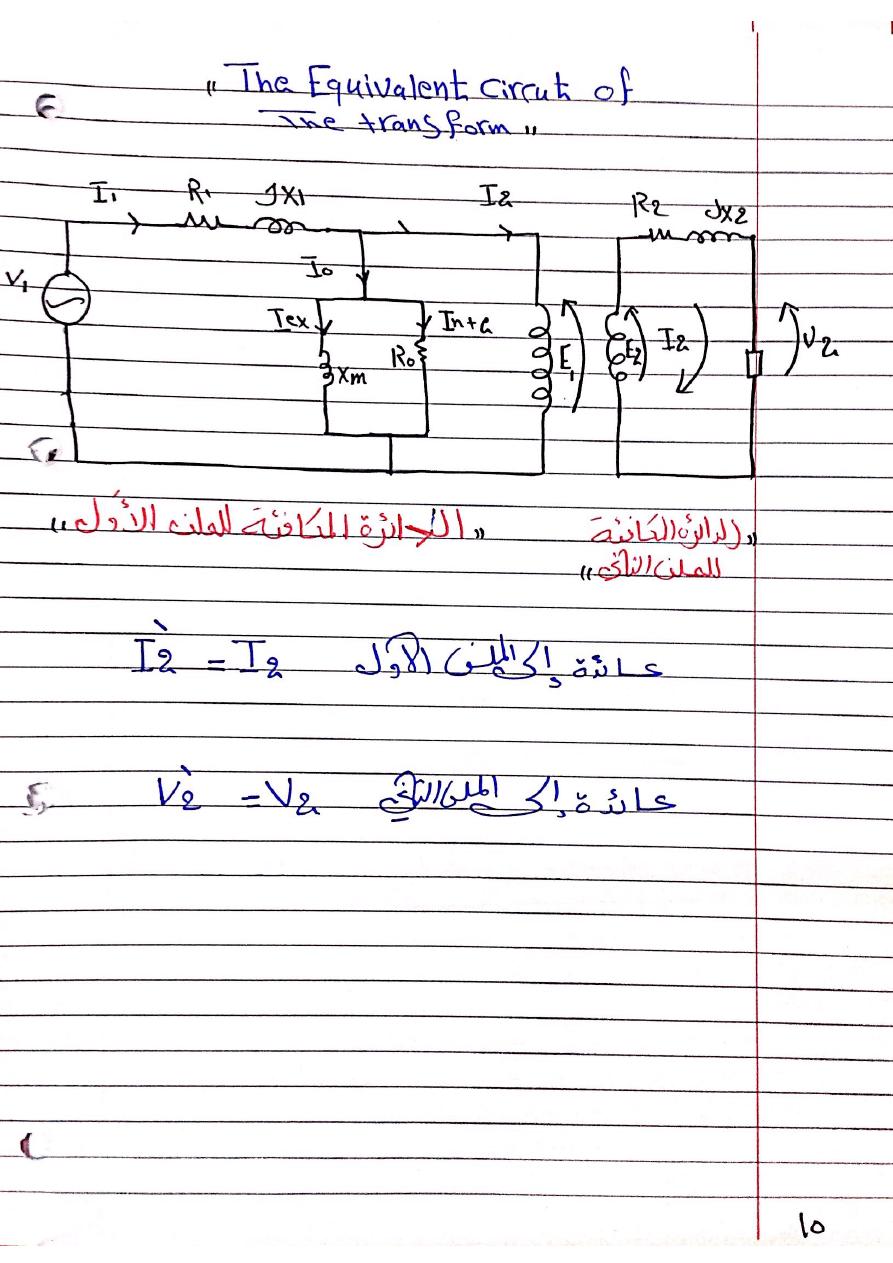 " The Equivalent Circut of
The transform "
I1 R1 JX1 I2 R2 JX2
V1
I0
Iex Ih+e
Xm R0 E1 E2 I2 V2
"الدائرة المكافئة للملف الأول"
"الدائرة الكافئة
للملف الثاني"
I2̀ = I2 عائدة إلى الملف الأول
V2̀ = V2 عائدة إلى الملف الثاني
10